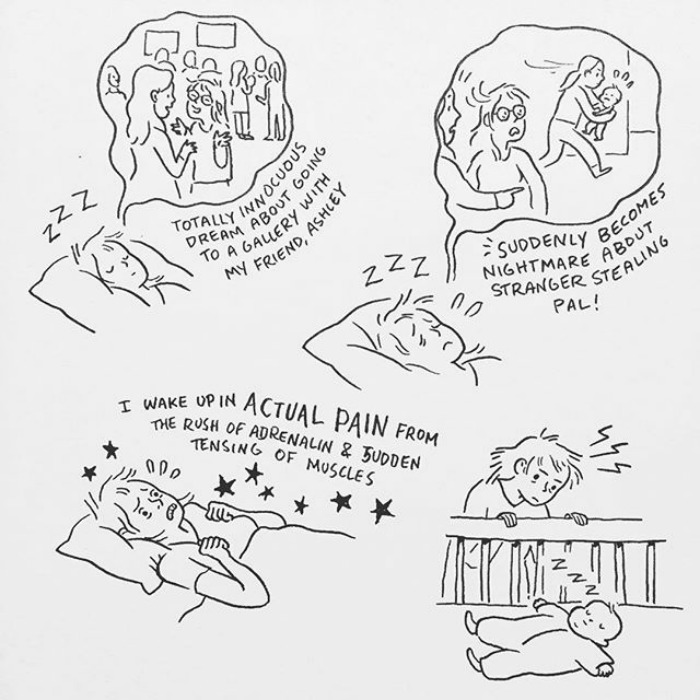 ZZZ
TOTALLY INNOCUOUS
DREAM ABOUT GOING
TO A GALLERY WITH
MY FRIEND, ASHLEY
ZZZ
SUDDENLY BECOMES
NIGHTMARE ABOUT
STRANGER STEALING
PAL!
I WAKE UP IN ACTUAL PAIN FROM
THE RUSH OF ADRENALIN & SUDDEN
TENSING OF MUSCLES
ZZZZ